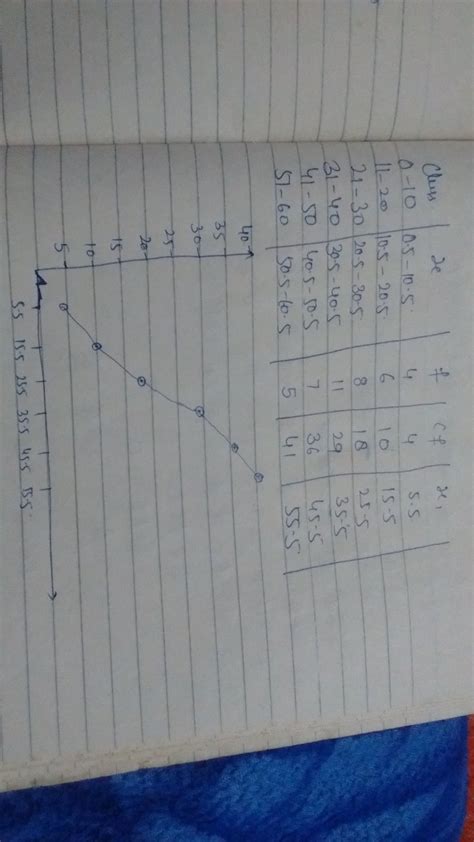 Class x f cf x1
0-10 0.5-10.5 4 4 5.5
11-20 10.5-20.5 6 10 15.5
21-30 20.5-30.5 8 18 25.5
31-40 30.5-40.5 11 29 35.5
41-50 40.5-50.5 7 36 45.5
51-60 50.5-60.5 5 41 55.5
40
35
30
25
20
15
10
5
5.5 15.5 25.5 35.5 45.5